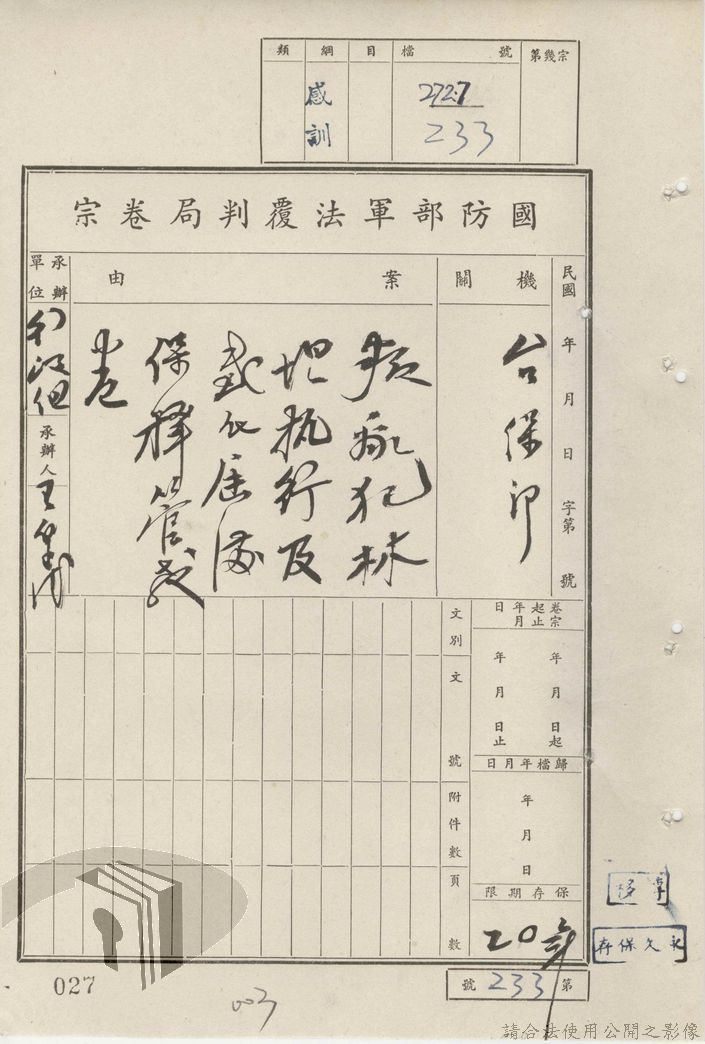 類 綱 目 檔 號 第幾宗
感訓 2727
233
國防部軍法覆判局卷宗
民國 年 月 日 字第 號
機關
台保
案由
叛亂犯林
坦執行及
感化屆滿
保釋管
卷
承辦單位
承辦人
卷宗起止年月日
年 月 日起
年 月 日止
歸檔年月日
年 月 日
保存期限
20年
文別
文號
附件數
頁數
永久保存
第 233 號
027
003
請合法使用公開之影像